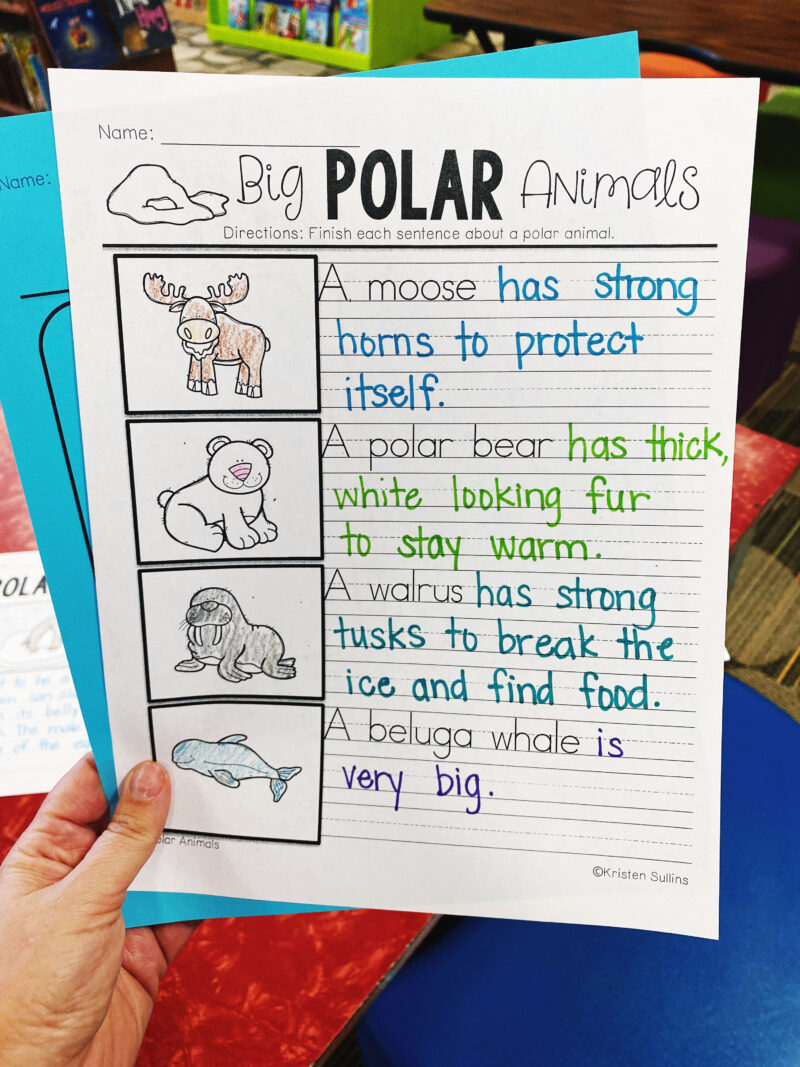 Name:
Big POLAR Animals
Directions: Finish each sentence about a polar animal.
A moose has strong
horns to protect
itself.
A polar bear has thick,
white looking fur
to stay warm.
A walrus has strong
tusks to break the
ice and find food.
A beluga whale is
very big.
Animals
©Kristen Sullins
Name:
to be
can
its belly
The male
of the